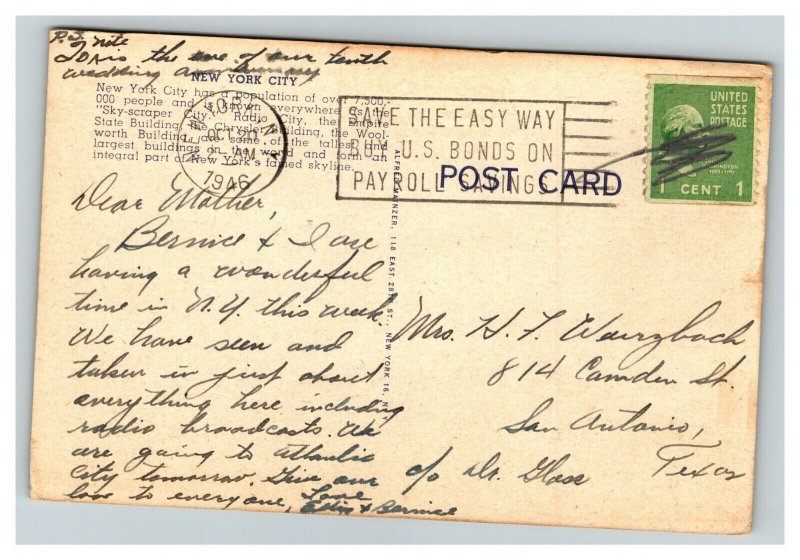 P.S.
Tonite is the eve of our tenth
wedding anniversary
NEW YORK CITY
New York City has a population of over 7,500,-
000 people and is known everywhere as the
"Sky-scraper City". Radio City, the Empire
State Building, the Chrysler Building, the Wool-
worth Building are some of the tallest and
largest buildings on the world and form an
integral part of New York's famed skyline.
NEW YORK, N.Y.
OCT 20
AM
1946
SAVE THE EASY WAY
BUY U.S. BONDS ON
PAYROLL SAVINGS
POST CARD
UNITED
STATES
POSTAGE
WASHINGTON
1 CENT 1
ALFRED MAINZER, 118 EAST 28TH ST., NEW YORK 16, N.Y.
Dear Mother,
Bernice & I are
having a wonderful
time in N.Y. this week.
We have seen and
taken in just about
everything here including
radio broadcasts. We
are going to Atlantic
City tomorrow. Give our
love to everyone,
Love
& Bernice
Mrs. H. F. Wurzbach
814 Camden St.
San Antonio,
Texas
c/o Dr. Glass